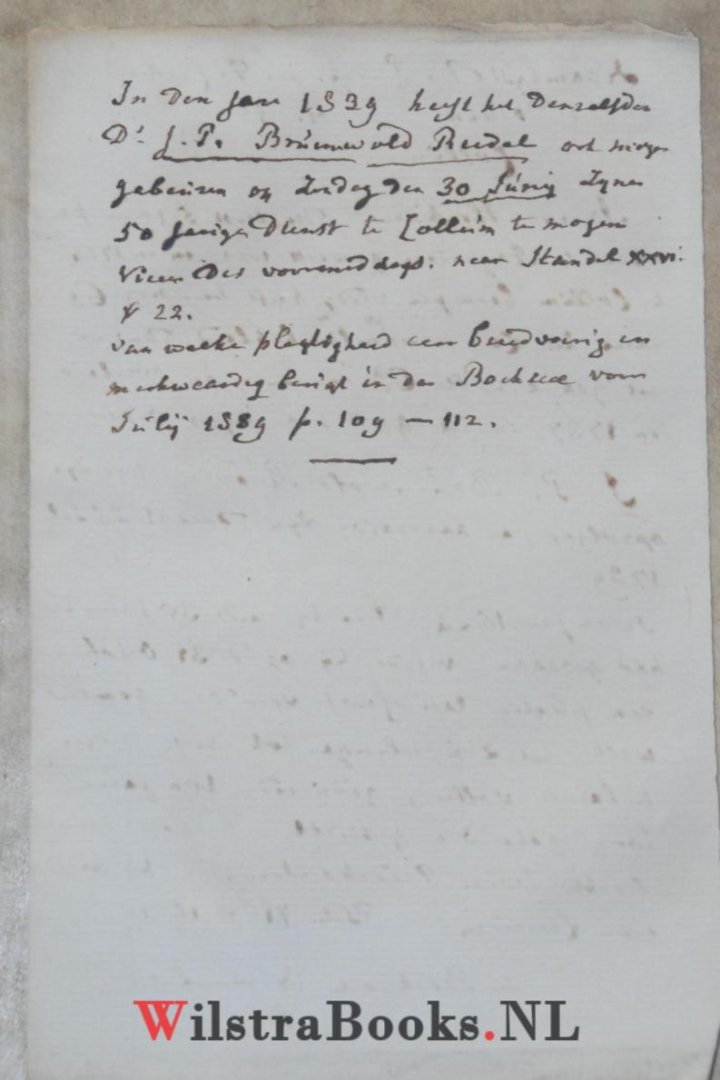 In den jare 1839 heeft het denzelfden
Ds. J. P. Bruinwold Riedel ook mogen
gebeuren op Zondag den 30 Junij Zijne
50 jarige Dienst te Zollum te mogen
Vieren des voormiddags. naar Handel XXVI:
v 22.
van welke plegtigheid een breedvoerig en
merkwaardig berigt in den Boekzaal voor
Julij 1839 p. 109 — 112.
WilstraBooks.NL